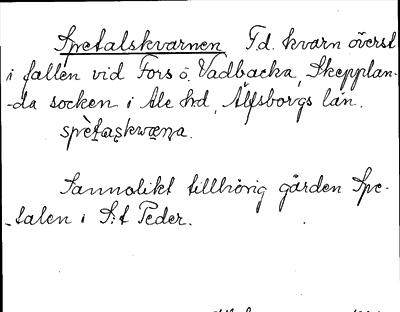 Spetalskvarnen, F.d. kvarn överst
i fallen vid Fors o. Vadbacka, Skepplan-
-da socken i Ale hd, Älfsborgs län.
spètaʂkwæɳa.
Sannolikt tillhörig gården Spe-
-talen i S:t Peder.